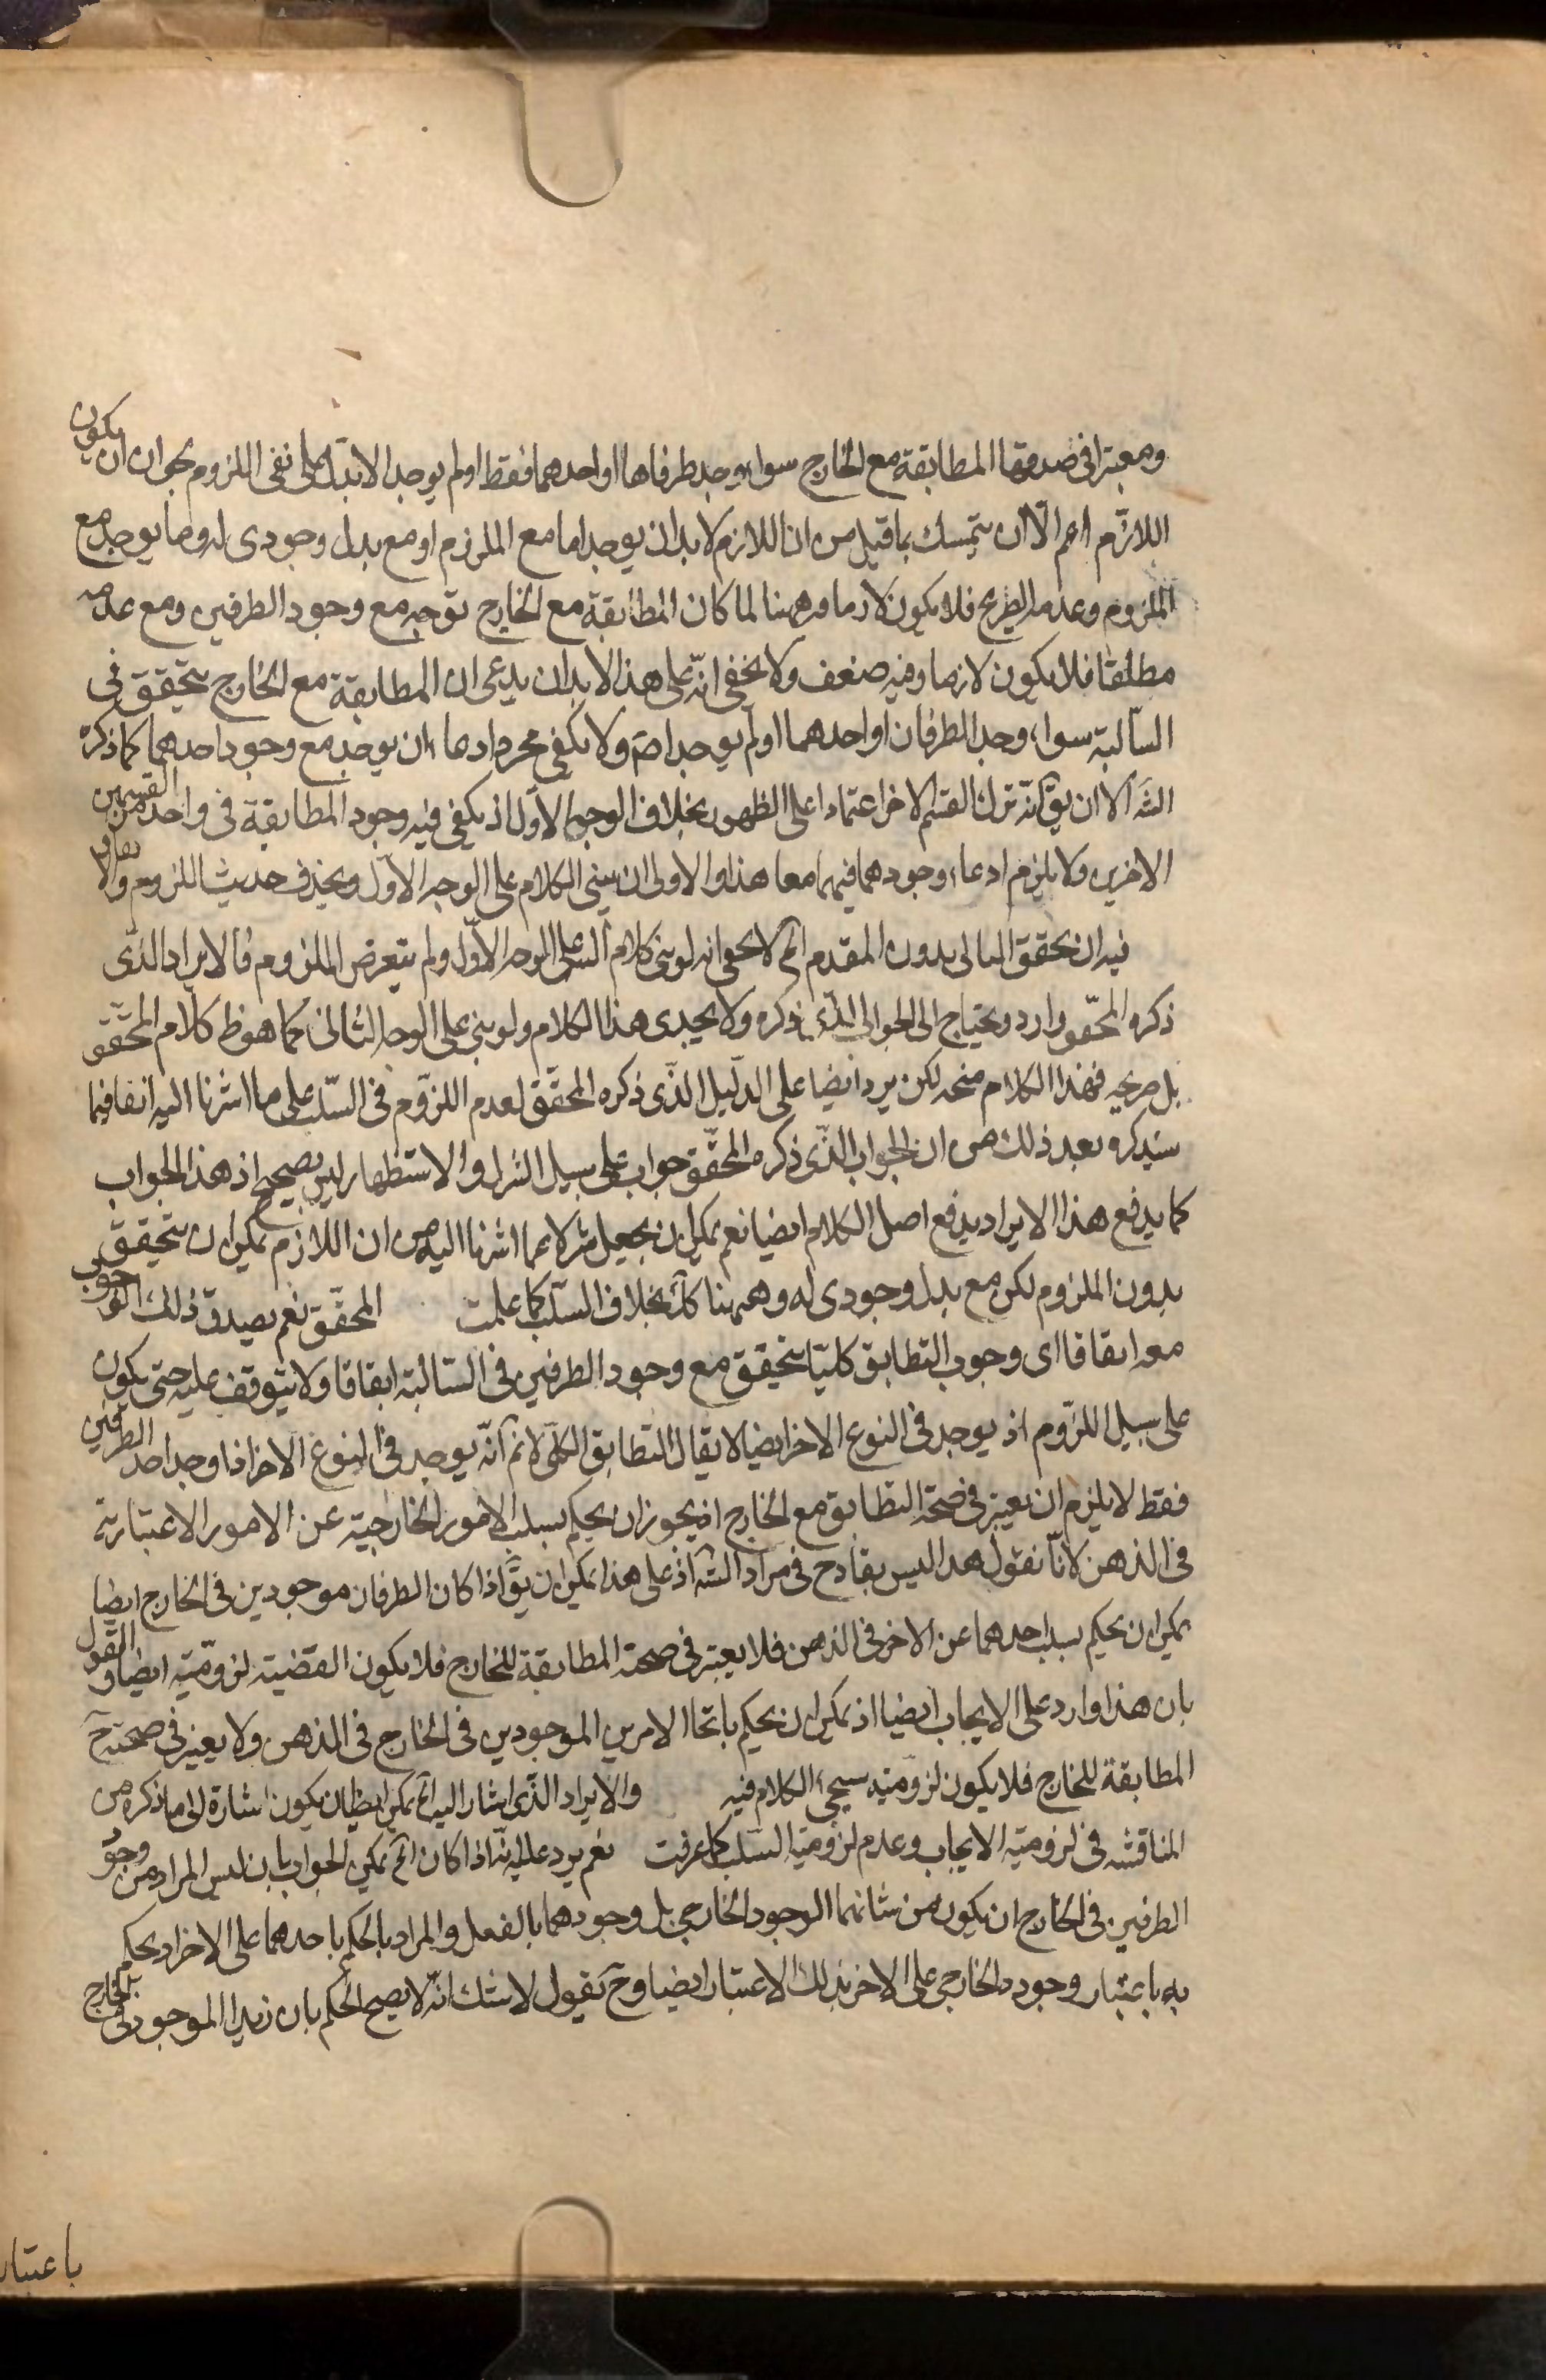 ومعتبرا فى صدقها المطابقة مع الخارج سواء وجد طرفاها او احدهما فقط او لم يوجد الا بتدل على نفى اللزوم بجواز ان يكون
اللازم اعم الّا ان يتمسك بما قيل من ان اللازم لا بد ان يوجد اما مع الملزوم او مع بدل وجودى له وما يوجد مع
الملزوم وعدمه الصريح فلا يكون لازما وههنا لما كان المطابقة مع الخارج توجد مع وجود الطرفين ومع عدمه
مطلقا فلا يكون لازما وفيه ضعف ولا يخفى انّه على هذا لا بد ان يدعى ان المطابقة مع الخارج يتحقق فى
السالبة سواء وجد الطرفان او احدهما او لم يوجد اصلا ولا يكفى مجرد ادعاء ان يوجد مع وجود احدهما كما ذكره
الشَ الا ان يقَ انّه ترك القسم الاخر اعتمادا على الظهور بخلاف الوجه الاوّل اذ يكفى فيه وجود المطابقة فى واحد من القسمين
الاخرين ولا يلزم ادعاء وجودهما فيهما معا هذا والاولى ان يبنى الكلام على الوجه الاوّل ويحذف حديث اللزوم والا
فيه ان تحقق التالى بدون المقدم الخ لا يخفى انه لو بنى كلام الشَ على الوجه الاوّل ولم يتعرض الملزوم فالايراد الذّى
ذكره المحّقق وارد ويحتاج الى الجواب الذّى ذكره ولا يجدى هذا الكلام ولو بنى على الوجه الثانى كما هو ظ كلام المحّقق
بل صريحه فهذا الكلام متجه لكن يرد ايضا على الدّليل الذّى ذكره المحّقق لعدم اللزّوم فى السّلب على ما اشرنا اليه انفا فيما
سيذكره بعد ذلك من ان الجواب الذّى ذكره المحّقق جواب على سبيل التنزل والاستظهار ليس بصحيح اذ هذا الجواب
كما يدفع هذا الايراد يدفع اصل الكلام ايضا نعم يمكن ان يجعل تنزلا عما اشرنا اليه من ان اللازم يمكن ان يتحقق
بدون الملزوم لكن مع بدل وجودى له وههنا كك بخلاف السّلب كما علمت المحّقق نعم يصدق ذلك الوجوب
معه اتفاقا اى وجوب التطابق كليّا يتحقق مع وجود الطرفين فى السّالبة اتفاقا ولا يتوقف عليه حتى يكون
على سبيل اللزّوم اذ يوجد فى النوع الاخر ايضا لا يقال التطابق الكلّى لا نم انّه يوجد فى النوع الاخر اذا وجد احد الطرفين
فقط لا يلزم ان يعتبر فى صحّة التطابق مع الخارج اذ يجوز ان يحكم بسلب الامور الخارجية عن الامور الاعتبارية
فى الذهن لانّا نقول هذا ليس بقادح فى مراد الشَ اذ على هذا يمكن ان يقَ اذا كان الطرفان موجودين فى الخارج ايضا
يمكن ان يحكم بسلب احدهما عن الاخر فى الذهن فلا يعتبر فى صحة المطابقة للخارج فلا يكون القضية لزوميّة ايضا والقول
بان هذا وارد على الايجاب ايضا اذ يمكن ان يحكم باتحاد الامرين الموجودين فى الخارج فى الذهن ولا يعتبر فى صحته ح
المطابقة للخارج فلا يكون لزوميّة سيجىء الكلام فيه والايراد الذّى اشار اليه الخ يمكن ايضا ان يكون اشارة الى ما ذكره من
المناقشه فى لزوميّة الايجاب وعدم لزوميّة السّلب كما عرفت نعم يرد عليه انّه اذا كان الخ يمكن الجواب بان ليس المراد من وجود
الطرفين فى الخارج ان يكون من شانهما الوجود الخارجى بل وجودهما بالفعل والمراد بالحكم باحدهما على الاخر ان يحكم
به باعتبار وجوده الخارجى على الاخر بذلك الاعتبار ايضا وح نقول لا شك انّه لا يصح الحكم بان زيدا الموجود فى الخارج
باعتبار